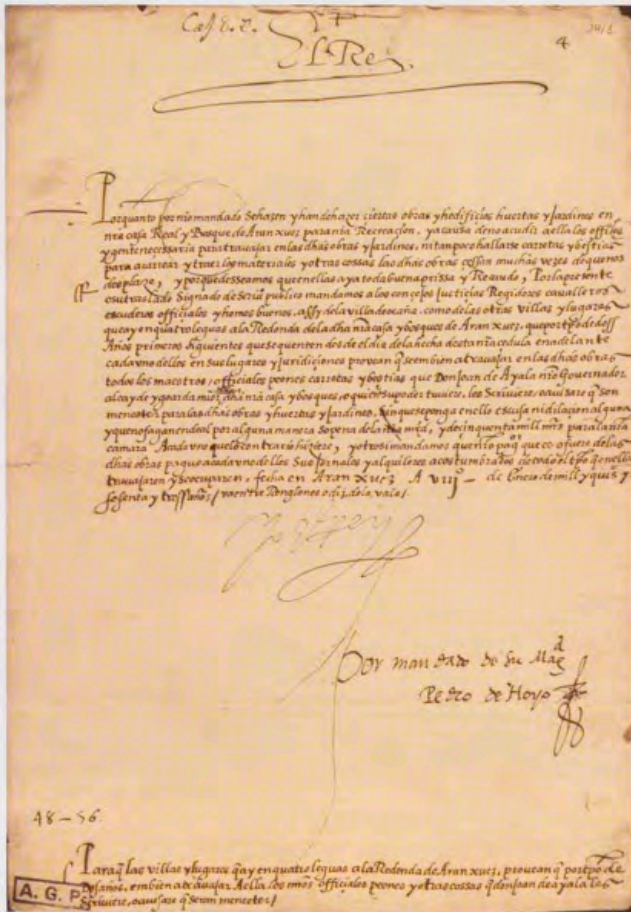 4
El Rey.
Porquanto por mio mandado se hazen y han de hazer ciertas obras y hedificios huertas y Jardines en
nra casa Real y Bosque de Aranxuez para nra Recreacion, y a causa de no acudir a ella los officiales
y gente necessaria para travajar en las dhas obras y Jardines, ni tanpoco hallarse carretas y bestias
para acarrear y traer los materiales y otras cossas las dhas obras cessan muchas vezes de que nos
, y porque desseamos que en ellas aya toda buena prissa y Recaudo, Por la presente
o su traslado Signado de scriu publico mandamos a los concejos Justicias Regidores cavalleros
escuderos officiales y homes buenos, assy de la villa de ocaña, como de las otras villas y lugares
que ay en quatro leguas a la Redonda de la dha nra casa y bosques de Aranxuez, que por tpo de dos
Años primeros siguientes que se quenten desde el dia de la hecha desta nra cedula en adelante
cada vno dellos en sus lugares y Juridiciones provean que se embien a travajar en las dhas obras
todos los maestros, officiales peones carretas y bestias que Don Joan de Ayala nro Governador
alcayde y guarda mayor dha nra casa y bosques, o quien su poder tuviere, les Scriviere, o avisare q̃ son
menester para las dhas obras y huertas y Jardines, sin que se ponga en ello escusa ni dilacion alguna
y que no fagan en de al por alguna manera so pena de la nra mrd, y de cinquenta mill mrs para la nra
camara A cada vno que lo contrario hiziere, y otrosi mandamos que el pagor que es o fuere de las
dhas obras pague a cada vno dellos Sus Jornales y alquileres acostumbrados de todo el tpo q̃ en ella
travajaren y se ocuparen, fecha en Aranxuez A viij - de Enero de mill y quis y
sesenta y tres años / va entre Renglones o diz de la vala /
Por mandado de Su Magd
Pedro de Hoyo
48-56
Para q̃ las villas y lugares q̃ ay en quatro leguas a la Redonda de Aranxuez, provean q̃ por tpo de
Dos años, embien a travajar A ella los mros officiales peones y otras cossas q̃ don Joan de ayala les
Scriviere, o avisare q̃ seran menester /
A. G. P.